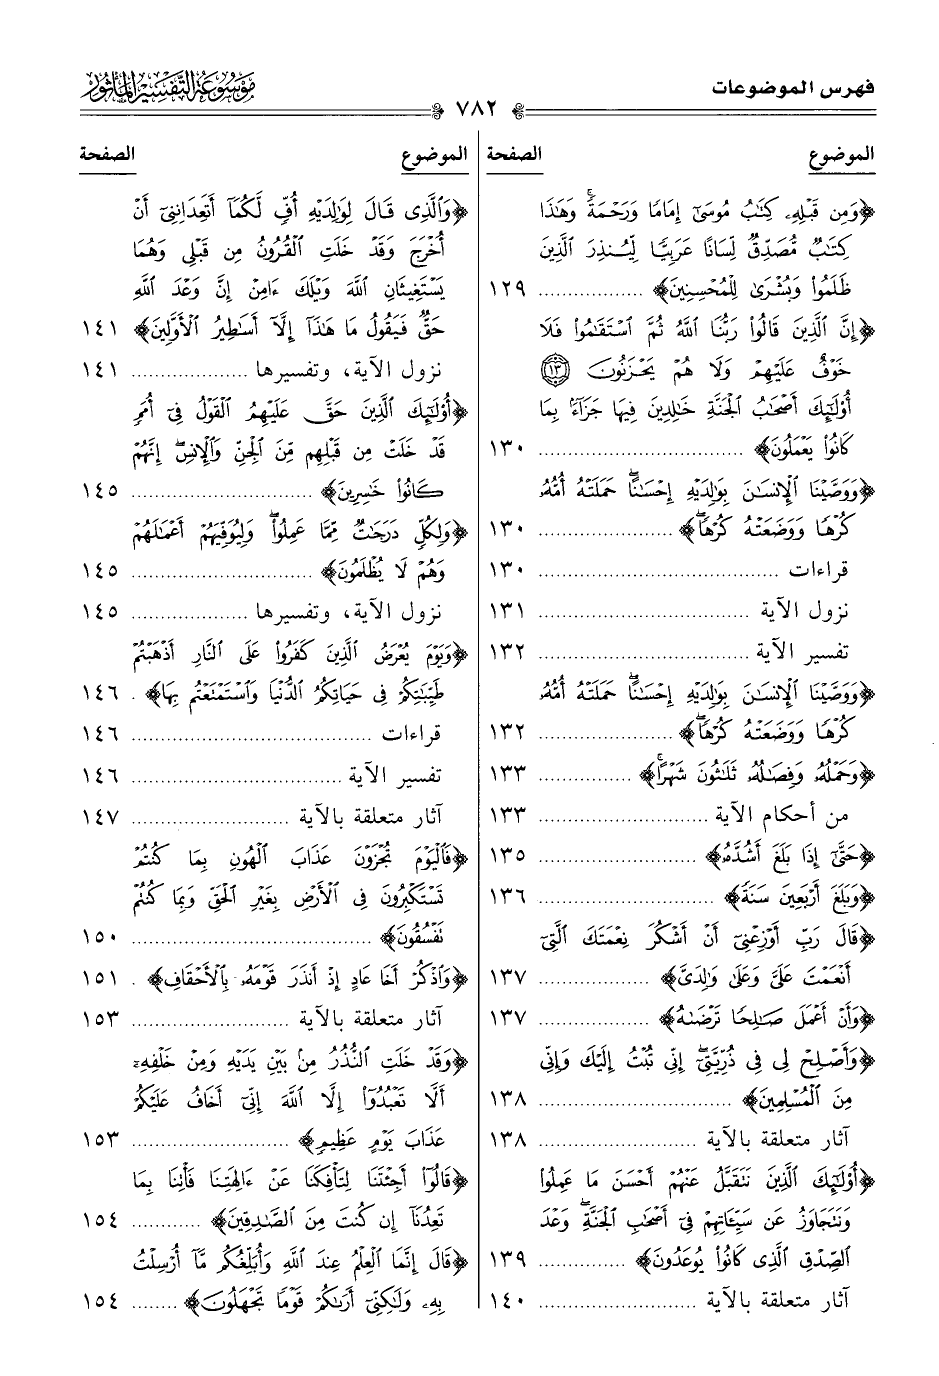 فهرس الموضوعات
موسوعة التفسير المأثور
٧٨٢
الموضوع الصفحة
﴿وَمِن قَبْلِهِۦ كِتَٰبُ مُوسَىٰٓ إِمَامًا وَرَحْمَةً ۚ وَهَٰذَا
كِتَٰبٌ مُّصَدِّقٌ لِّسَانًا عَرَبِيًّا لِّيُنذِرَ ٱلَّذِينَ
ظَلَمُوا۟ وَبُشْرَىٰ لِلْمُحْسِنِينَ﴾ .................. ١٢٩
﴿إِنَّ ٱلَّذِينَ قَالُوا۟ رَبُّنَا ٱللَّهُ ثُمَّ ٱسْتَقَٰمُوا۟ فَلَا
خَوْفٌ عَلَيْهِمْ وَلَا هُمْ يَحْزَنُونَ ۝١٣
أُو۟لَٰٓئِكَ أَصْحَٰبُ ٱلْجَنَّةِ خَٰلِدِينَ فِيهَا جَزَآءًۢ بِمَا
كَانُوا۟ يَعْمَلُونَ﴾ .................. ١٣٠
﴿وَوَصَّيْنَا ٱلْإِنسَٰنَ بِوَٰلِدَيْهِ إِحْسَٰنًا ۖ حَمَلَتْهُ أُمُّهُۥ
كُرْهًا وَوَضَعَتْهُ كُرْهًا ۖ﴾ .................. ١٣٠
قراءات .................. ١٣٠
نزول الآية .................. ١٣١
تفسير الآية .................. ١٣٢
﴿وَوَصَّيْنَا ٱلْإِنسَٰنَ بِوَٰلِدَيْهِ إِحْسَٰنًا ۖ حَمَلَتْهُ أُمُّهُۥ
كُرْهًا وَوَضَعَتْهُ كُرْهًا ۖ﴾ .................. ١٣٢
﴿وَحَمْلُهُۥ وَفِصَٰلُهُۥ ثَلَٰثُونَ شَهْرًا ۚ﴾ .................. ١٣٣
من أحكام الآية .................. ١٣٣
﴿حَتَّىٰٓ إِذَا بَلَغَ أَشُدَّهُۥ﴾ .................. ١٣٥
﴿وَبَلَغَ أَرْبَعِينَ سَنَةً﴾ .................. ١٣٦
﴿قَالَ رَبِّ أَوْزِعْنِىٓ أَنْ أَشْكُرَ نِعْمَتَكَ ٱلَّتِىٓ
أَنْعَمْتَ عَلَىَّ وَعَلَىٰ وَٰلِدَىَّ﴾ .................. ١٣٧
﴿وَأَنْ أَعْمَلَ صَٰلِحًا تَرْضَىٰهُ﴾ .................. ١٣٧
﴿وَأَصْلِحْ لِى فِى ذُرِّيَّتِىٓ ۖ إِنِّى تُبْتُ إِلَيْكَ وَإِنِّى
مِنَ ٱلْمُسْلِمِينَ﴾ .................. ١٣٨
آثار متعلقة بالآية .................. ١٣٨
﴿أُو۟لَٰٓئِكَ ٱلَّذِينَ نَتَقَبَّلُ عَنْهُمْ أَحْسَنَ مَا عَمِلُوا۟
وَنَتَجَاوَزُ عَن سَيِّـَٔاتِهِمْ فِىٓ أَصْحَٰبِ ٱلْجَنَّةِ ۖ وَعْدَ
ٱلصِّدْقِ ٱلَّذِى كَانُوا۟ يُوعَدُونَ﴾ .................. ١٣٩
آثار متعلقة بالآية .................. ١٤٠
الموضوع الصفحة
﴿وَٱلَّذِى قَالَ لِوَٰلِدَيْهِ أُفٍّ لَّكُمَآ أَتَعِدَانِنِىٓ أَنْ
أُخْرَجَ وَقَدْ خَلَتِ ٱلْقُرُونُ مِن قَبْلِى وَهُمَا
يَسْتَغِيثَانِ ٱللَّهَ وَيْلَكَ ءَامِنْ إِنَّ وَعْدَ ٱللَّهِ
حَقٌّ فَيَقُولُ مَا هَٰذَآ إِلَّآ أَسَٰطِيرُ ٱلْأَوَّلِينَ﴾ ١٤١
نزول الآية، وتفسيرها .................. ١٤١
﴿أُو۟لَٰٓئِكَ ٱلَّذِينَ حَقَّ عَلَيْهِمُ ٱلْقَوْلُ فِىٓ أُمَمٍ
قَدْ خَلَتْ مِن قَبْلِهِم مِّنَ ٱلْجِنِّ وَٱلْإِنسِ ۖ إِنَّهُمْ
كَانُوا۟ خَٰسِرِينَ﴾ .................. ١٤٥
﴿وَلِكُلٍّ دَرَجَٰتٌ مِّمَّا عَمِلُوا۟ ۖ وَلِيُوَفِّيَهُمْ أَعْمَٰلَهُمْ
وَهُمْ لَا يُظْلَمُونَ﴾ .................. ١٤٥
نزول الآية، وتفسيرها .................. ١٤٥
﴿وَيَوْمَ يُعْرَضُ ٱلَّذِينَ كَفَرُوا۟ عَلَى ٱلنَّارِ أَذْهَبْتُمْ
طَيِّبَٰتِكُمْ فِى حَيَاتِكُمُ ٱلدُّنْيَا وَٱسْتَمْتَعْتُم بِهَا﴾ . ١٤٦
قراءات .................. ١٤٦
تفسير الآية .................. ١٤٦
آثار متعلقة بالآية .................. ١٤٧
﴿فَٱلْيَوْمَ تُجْزَوْنَ عَذَابَ ٱلْهُونِ بِمَا كُنتُمْ
تَسْتَكْبِرُونَ فِى ٱلْأَرْضِ بِغَيْرِ ٱلْحَقِّ وَبِمَا كُنتُمْ
تَفْسُقُونَ﴾ .................. ١٥٠
﴿وَٱذْكُرْ أَخَا عَادٍ إِذْ أَنذَرَ قَوْمَهُۥ بِٱلْأَحْقَافِ﴾ . ١٥١
آثار متعلقة بالآية .................. ١٥٣
﴿وَقَدْ خَلَتِ ٱلنُّذُرُ مِنۢ بَيْنِ يَدَيْهِ وَمِنْ خَلْفِهِۦٓ
أَلَّا تَعْبُدُوٓا۟ إِلَّا ٱللَّهَ إِنِّىٓ أَخَافُ عَلَيْكُمْ
عَذَابَ يَوْمٍ عَظِيمٍ﴾ .................. ١٥٣
﴿قَالُوٓا۟ أَجِئْتَنَا لِتَأْفِكَنَا عَنْ ءَالِهَتِنَا فَأْتِنَا بِمَا
تَعِدُنَآ إِن كُنتَ مِنَ ٱلصَّٰدِقِينَ﴾ ............ ١٥٤
﴿قَالَ إِنَّمَا ٱلْعِلْمُ عِندَ ٱللَّهِ وَأُبَلِّغُكُم مَّآ أُرْسِلْتُ
بِهِۦ وَلَٰكِنِّىٓ أَرَىٰكُمْ قَوْمًا تَجْهَلُونَ﴾ ........ ١٥٤